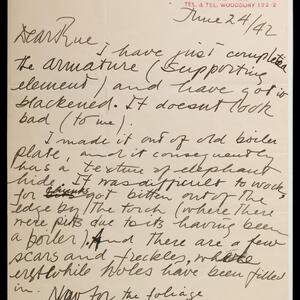 TEL. & TEL. WOODBURY 122-2
June 24/42
Dear Rue
I have just completed
the armature (supporting
element) and have got it
blackened. It doesn't look
bad (to me).
I made it out of old boiler
plate, and it consequently
has a texture of elephant
hide. It was difficult to work
for got bitten out of the
edge by the torch (where there
were pits due to its having been
a boiler), And there are a few
scars and freckles, where
erstwhile holes have been filled
in.
Now for the foliage